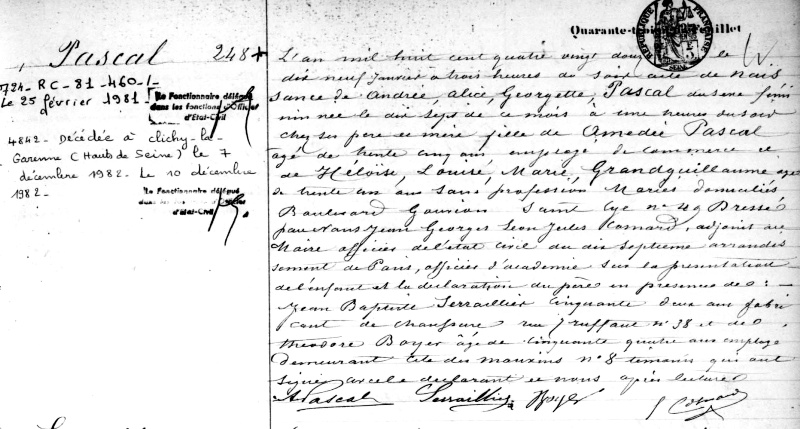 Quarante-troisième feuillet
RÉPUBLIQUE FRANÇAISE
Pascal 248
7724_ RC_81_460_1_
Le 25 février 1981_
Le Fonctionnaire délégué
dans les fonctions d'Officier
d'Etat-Civil
4842_ Décédée à Clichy-la-
Garenne (Hauts de Seine) le 7
décembre 1982_ Le 10 décembre
1982_
Le Fonctionnaire délégué
dans les fonctions d'Officier
d'Etat-Civil
L'an mil huit cent quatre vingt douze le
dix neuf Janvier à trois heures du soir acte de nais
sance de Andrée, Alice, Georgette, Pascal du sexe fémi
nin née le dix sept de ce mois à une heure du soir
chez ses père et mère fille de Amedée Pascal
agé de trente cinq ans, employé de commerce et
de Héloïse, Louise, Marie, Grandguillaume agée
de trente un ans sans profession Mariés domiciliés
Boulevard Gouvion Saint Cyr n° 49 Dressé
par Nous Jean Georges Léon Jules Comard, adjoint au
Maire officier de l'état civil du dix septième arrondis
sement de Paris, officier d'académie sur la présentation
de l'enfant et la déclaration du père en présence de :
Jean Baptiste Serraillier cinquante deux ans fabri
cant de chaussure rue Truffaut n° 38 et de
Théodore Boyer âgé de cinquante quatre ans employé
demeurant cité des n° 8 témoins qui ont
signé avec le déclarant et nous après lecture
A Pascal Serraillier Boyer Comard